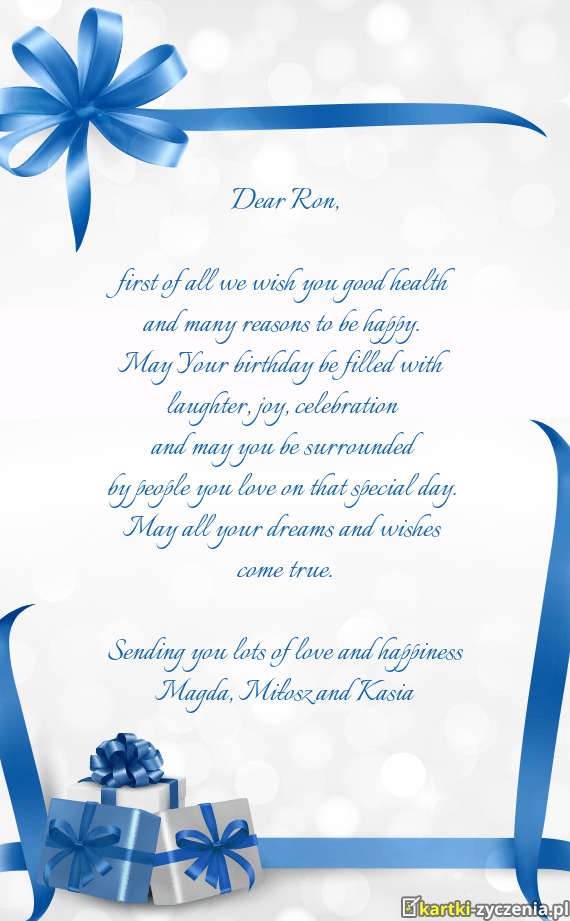 Dear Ron,
first of all we wish you good health
and many reasons to be happy.
May Your birthday be filled with
laughter, joy, celebration
and may you be surrounded
by people you love on that special day.
May all your dreams and wishes
come true.
Sending you lots of love and happiness
Magda, Miłosz and Kasia
kartki-zyczenia.pl